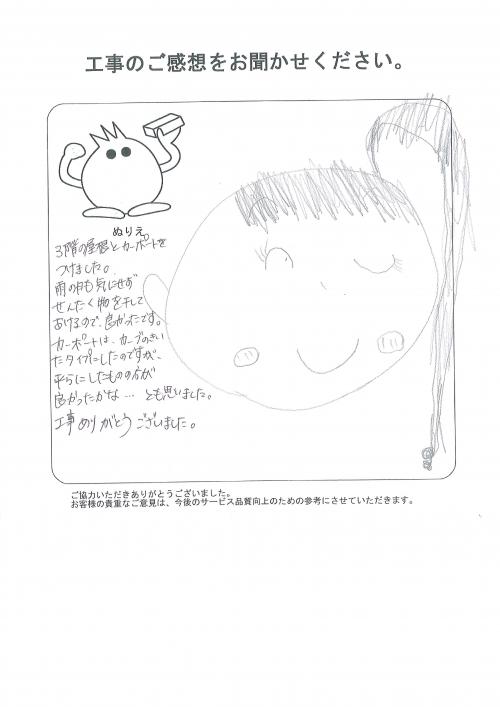 工事のご感想をお聞かせください。
ぬりえ
3階の屋根とカーポートを
つけました。
雨の日も気にせず
せんたく物を干して
おけるので、良かったです。
カーポートは、カーブのきい
たタイプにしたのですが、
平らにしたものの方が
良かったかな… とも思いました。
工事ありがとうございました。
ご協力いただきありがとうございました。
お客様の貴重なご意見は、今後のサービス品質向上のための参考にさせていただきます。